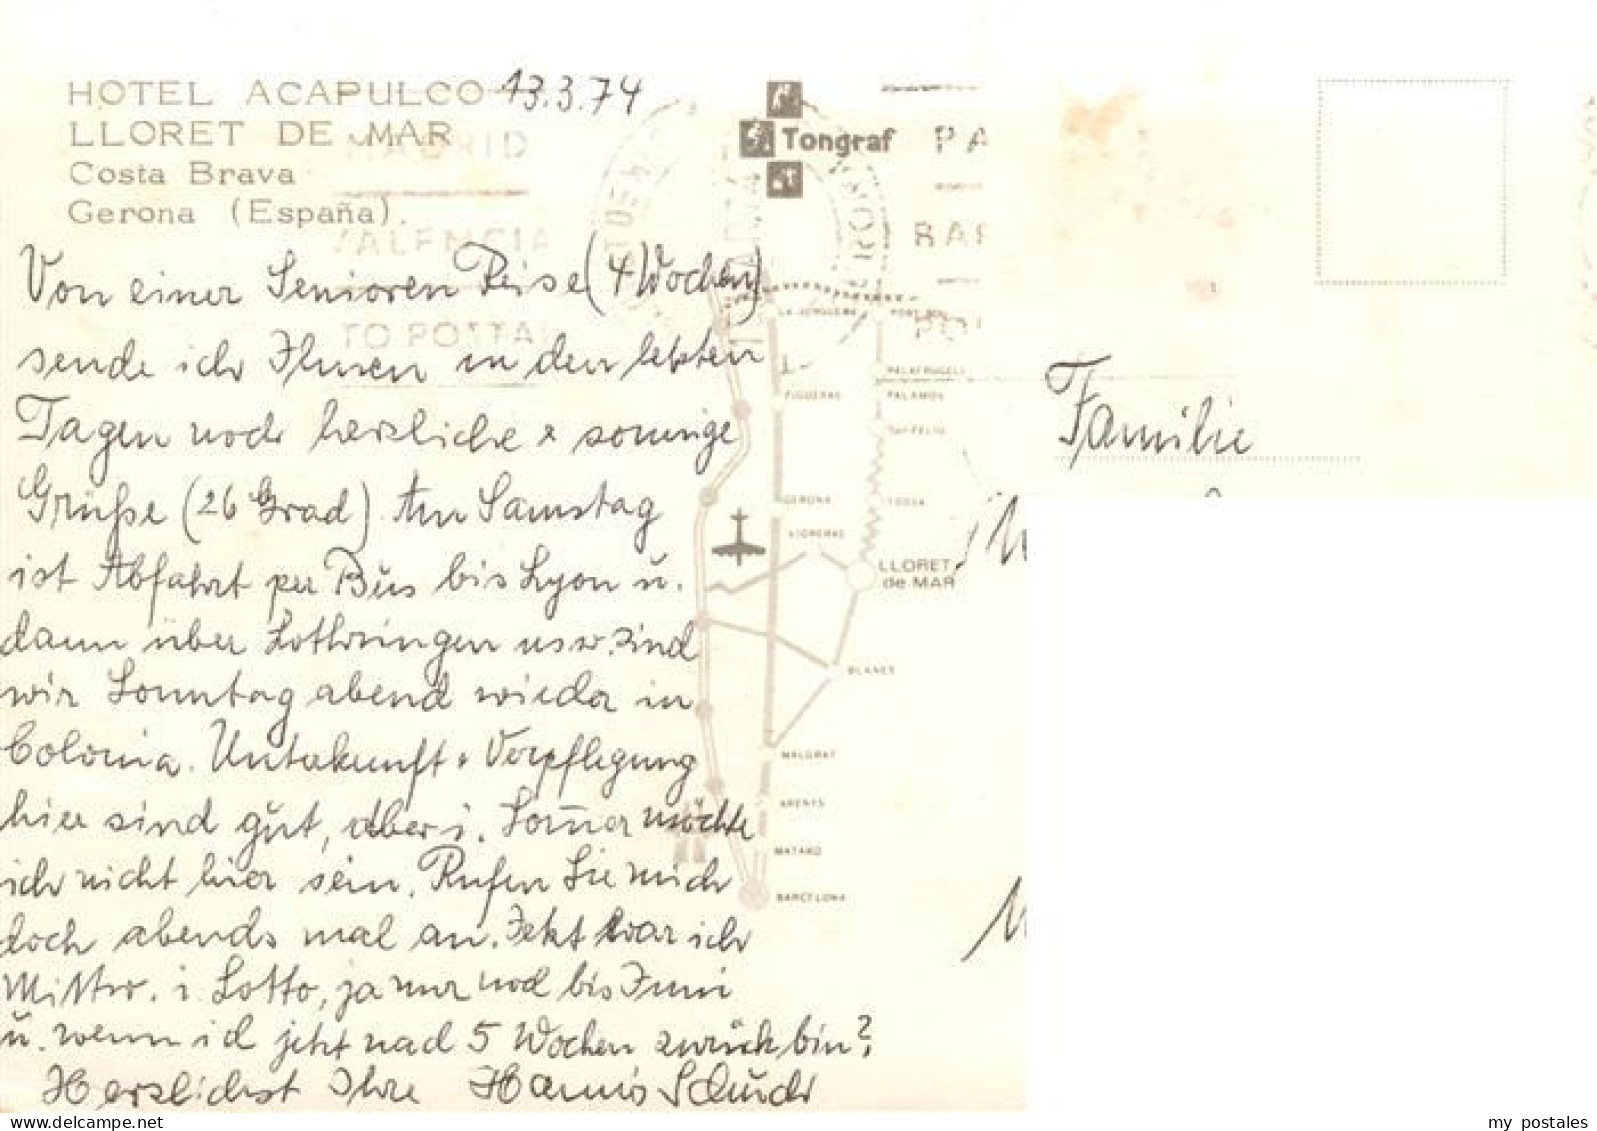 HOTEL ACAPULCO 13.3.74
LLORET DE MAR
Costa Brava
Gerona (España).
MADRID
VALENCIA
TO POSTA
Tongraf
PA
BAR
PO
Von einer Senioren Reise (4 Wochen)
sende ich Ihnen in den letzten
Tagen noch herzliche & sonnige
Grüße (26 Grad). Am Samstag
ist Abfahrt per Bus bis Lyon u.
dann über Lothringen usw. sind
wir Sonntag abend wieder in
Colonia. Unterkunft + Verpflegung
hier sind gut, aber i. Som̄er möchte
ich nicht hier sein. Rufen Sie mich
doch abends mal an. Jetzt war ich
Mittw. i. Lotto, ja nur noch bis Juni
u. wenn ich jetzt nach 5 Wochen zurück bin?
Herzlichst Ihre Hannis
Familie
LA JUNQUERA
PORT BOU
PALAFRUGELL
FIGUERAS
PALAMOS
SAN FELIU
GERONA
TOSSA
VIDRERAS
LLORET
de MAR
BLANES
MALGRAT
ARENYS
MATARO
BARCELONA
my postales
delcampe.net